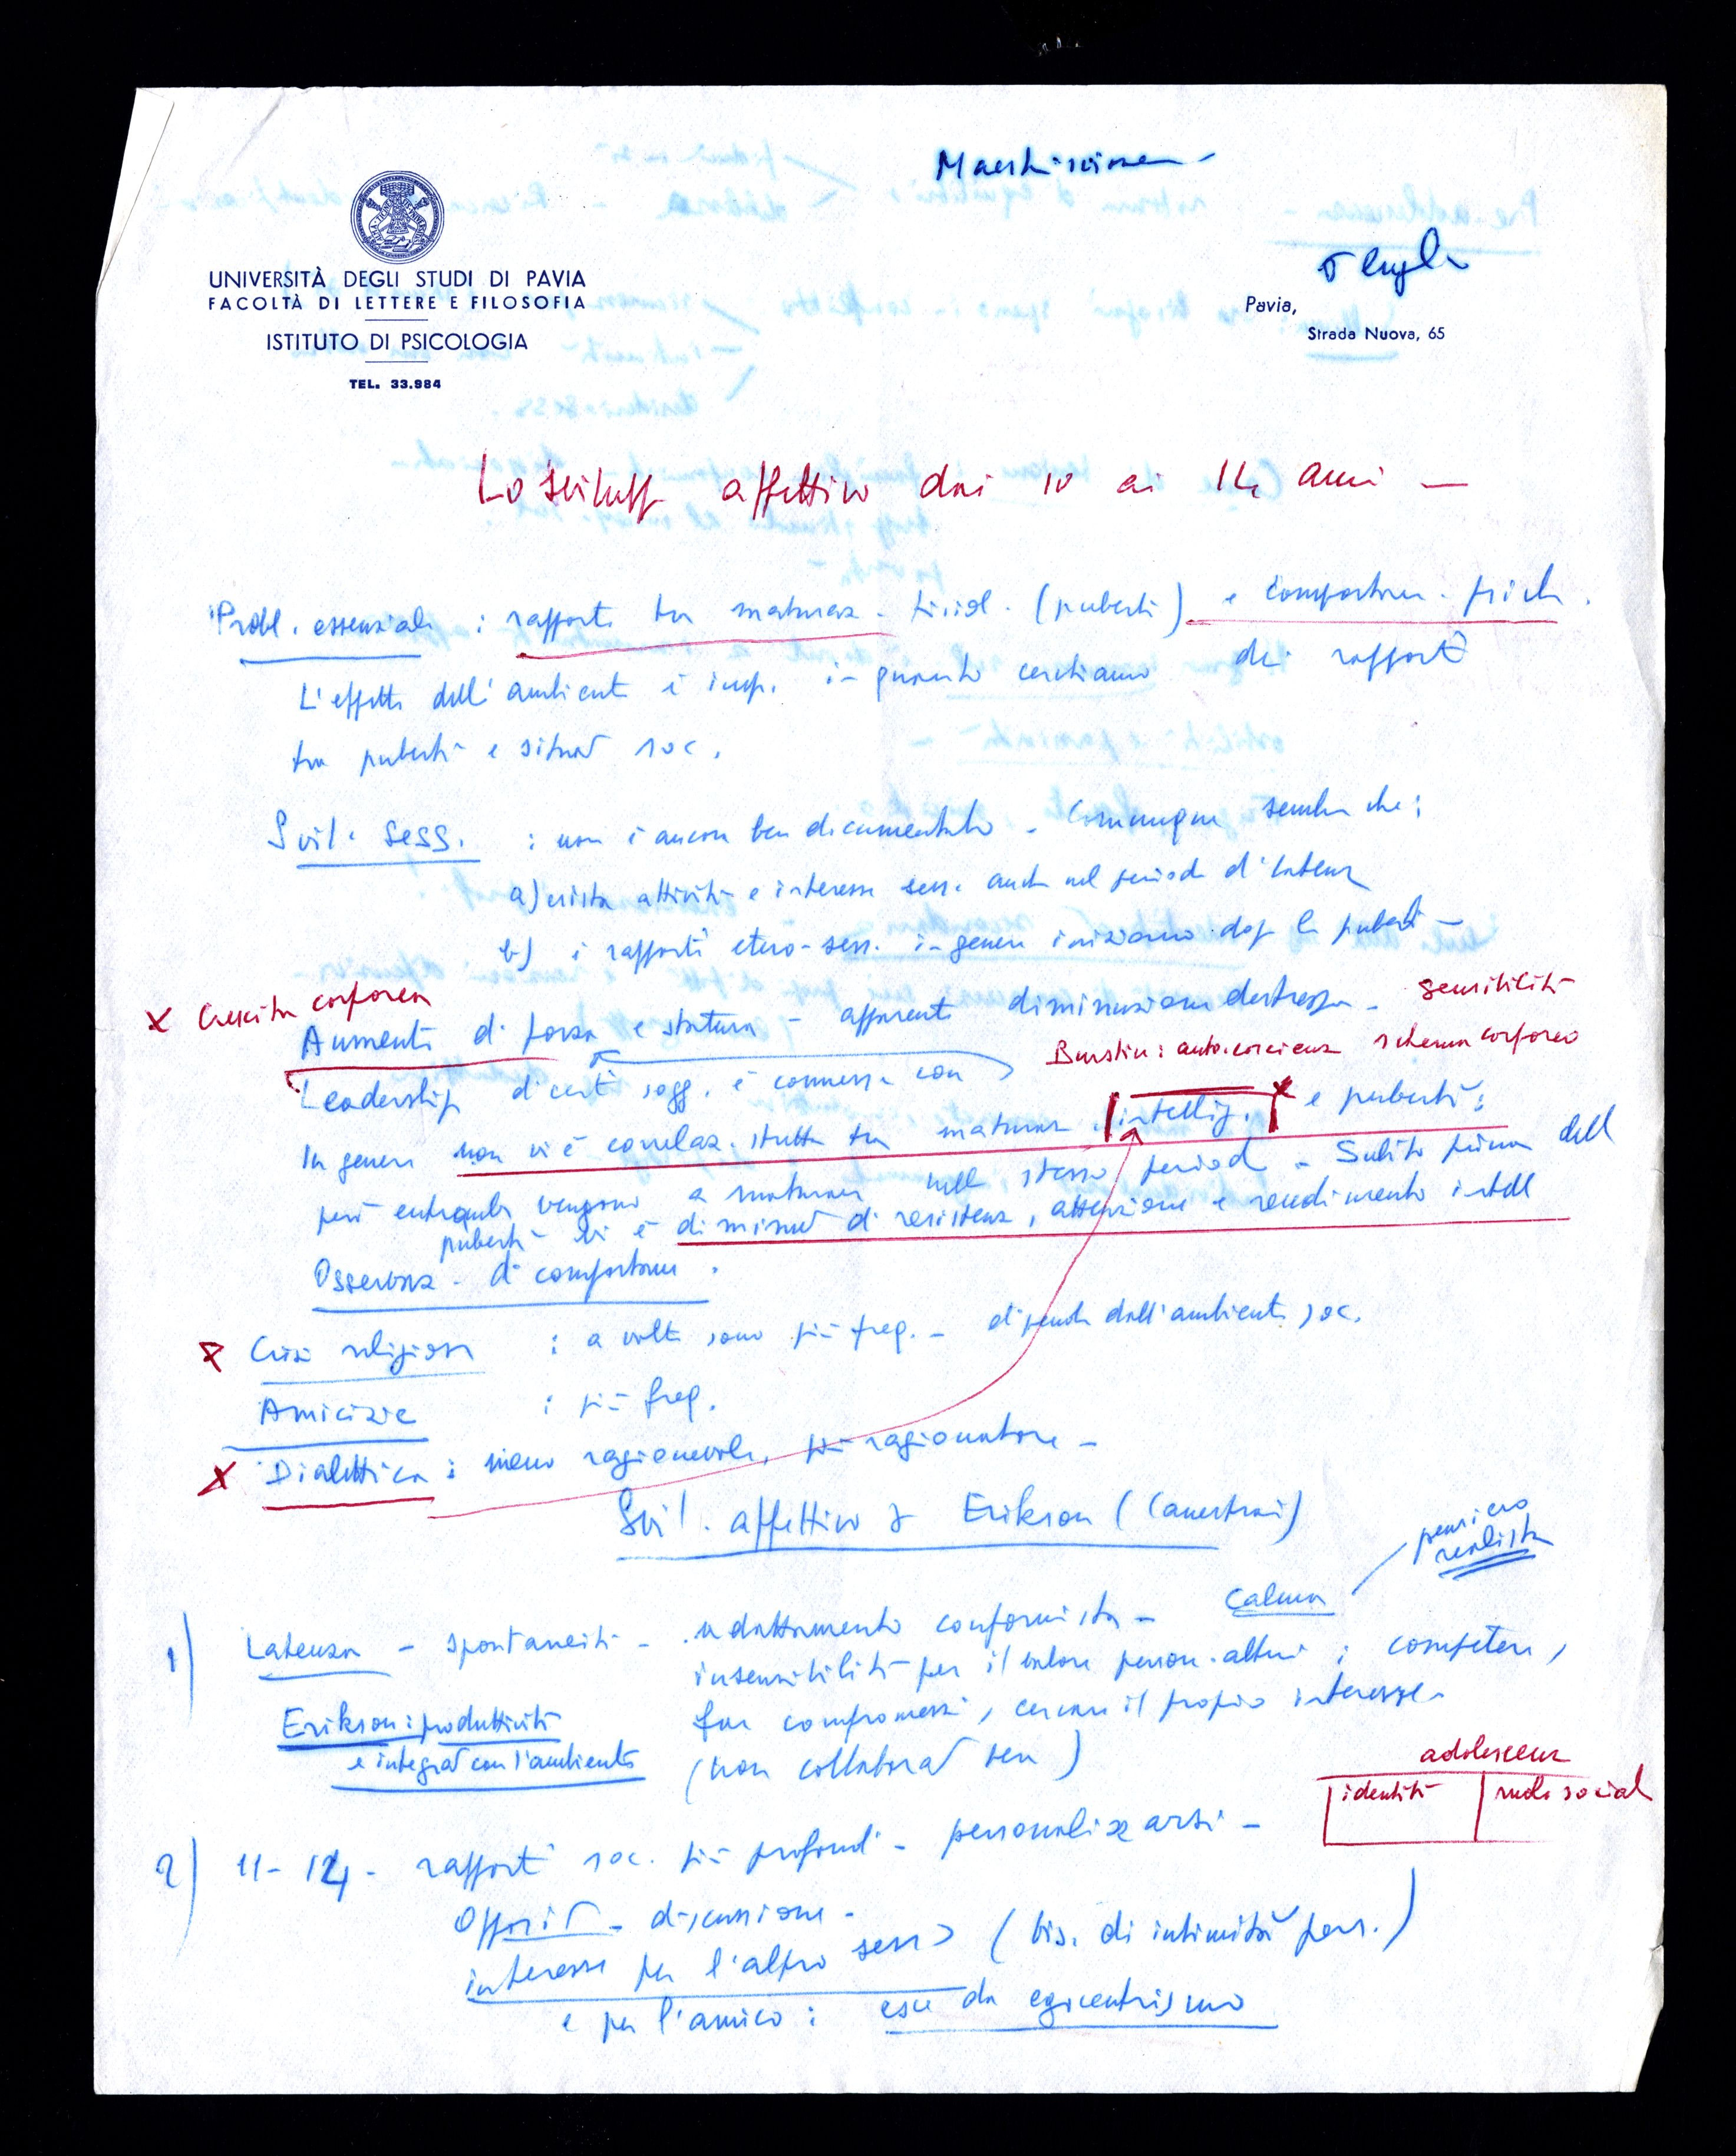 UNIVERSITÀ DEGLI STUDI DI PAVIA
FACOLTÀ DI LETTERE E FILOSOFIA
ISTITUTO DI PSICOLOGIA
TEL. 33.984
5 luglio
Pavia,
Strada Nuova, 65
Lo svilupp affettivo dai 10 ai 14 anni —
Probl. essenziale : rapporti tra maturaz. fisiol. (pubertà) e comportam. psich.
L'effetto dell'ambiente è imp. in quanto cerchiamo dei rapporti
tra pubertà e situaz soc.
Svil. sess. : non è ancora ben documentato - Comunque sembra che:
a) esista attività e interesse sess. anche nel periodo di latenza
b) i rapporti etero-sess. in genere iniziano dopo la pubertà -
x Crescita corporea
Aumento di forza e statura - apparente diminuzione destrezza - sensibilità
autocoscienza schema corporeo
Leadership di certi sogg. è connessa con
In genere non vi è correlaz. stretta tra maturaz. intellig. e pubertà:
però entrambe vengono a maturaz nello stesso periodo - Subito prima della
pubertà vi è diminuz di resistenza, attenzione e rendimento intell
Osservaz. di comportam.
x Crisi religiosa : a volte sono più freq. - dipende dall'ambiente soc.
Amicizie : più freq.
x Dialettica : meno ragionevole, più ragionatore -
Svil. affettivo Erikson (Canestrari)
pensiero
realista
1) Latenza - spontaneità - adattamento conformista - calma
insensibilità per il valore person. altrui ; competere,
Erikson: produttività far compromessi, cercare il proprio interesse
e integraz con l'ambiente (non collaboraz vera)
adolescenza
identità | ruolo sociale
2) 11-14 - rapporti soc. più profondi - personalizzarsi -
Opposiz - discussione -
interesse per l'altro sesso (bis. di intimità pers.)
e per l'amico : esce da egocentrismo